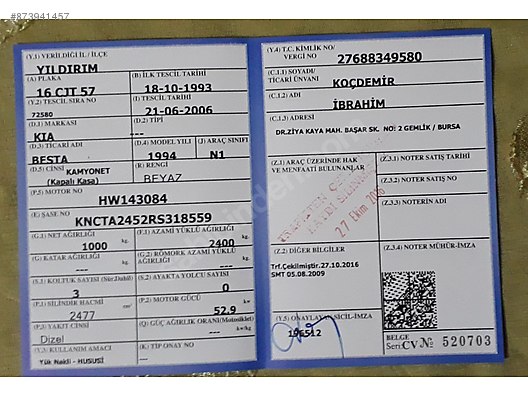 #873941457
(Y.1) VERİLDİĞİ İL / İLÇE
YILDIRIM
(A) PLAKA
16 CJT 57
(B) İLK TESCİL TARİHİ
18-10-1993
(Y.2) TESCİL SIRA NO
72580
(I) TESCİL TARİHİ
21-06-2006
(D.1) MARKASI
KIA
(D.2) TİPİ
---
(D.3) TİCARİ ADI
BESTA
(D.4) MODEL YILI
1994
(J) ARAÇ SINIFI
N1
(D.5) CİNSİ
KAMYONET
(Kapalı Kasa)
(R) RENGİ
BEYAZ
(P.5) MOTOR NO
HW143084
(E) ŞASE NO
KNCTA2452RS318559
(G.1) NET AĞIRLIĞI
1000 kg.
(F.1) AZAMİ YÜKLÜ AĞIRLIĞI
2400 kg.
(G) KATAR AĞIRLIĞI
--- kg.
(G.2) RÖMORK AZAMİ YÜKLÜ AĞIRLIĞI
--- kg.
(S.1) KOLTUK SAYISI
3
(S.2) AYAKTA YOLCU SAYISI
0
(P.1) SİLİNDİR HACMİ
2477 cm³
(P.2) MOTOR GÜCÜ
52.9 kw
(P.3) YAKIT CİNSİ
Dizel
(Q) GÜÇ AĞIRLIK ORANI (Motosiklet)
--- kw/kg
(Y.3) KULLANIM AMACI
Yük Nakli - HUSUSİ
(K) TİP ONAY NO
---
(Y.4) T.C. KİMLİK NO/
VERGİ NO
27688349580
(C.1.1) SOYADI/
TİCARİ ÜNVANI
KOÇDEMİR
(C.1.2) ADI
İBRAHİM
(C.1.3) ADRESİ
DR.ZİYA KAYA MAH. BAŞAR SK. NO: 2 GEMLİK / BURSA
(Z.1) ARAÇ ÜZERİNDE HAK
VE MENFAATİ BULUNANLAR
27 Ekim 2016
(Z.3.1) NOTER SATIŞ TARİHİ
(Z.3.2) NOTER SATIŞ NO
(Z.3.3) NOTERİN ADI
(Z.2) DİĞER BİLGİLER
Trf.Çekilmiştir.27.10.2016
SMT 05.08.2009
(Z.3.4) NOTER MÜHÜR-İMZA
(Y.5) ONAYLAYAN SİCİL-İMZA
196512
BELGE
Seri CV № 520703